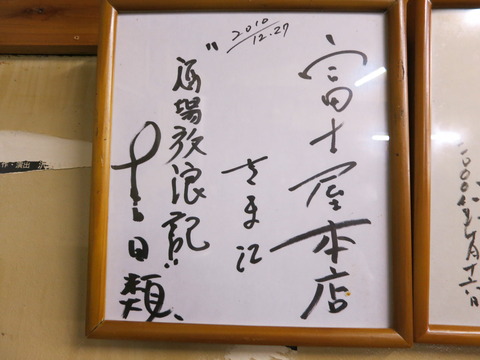 2010
12.27
富士屋本店
さま江
"酒場放浪記"
吉田類
二〇〇〇年七月十六日
作・演出